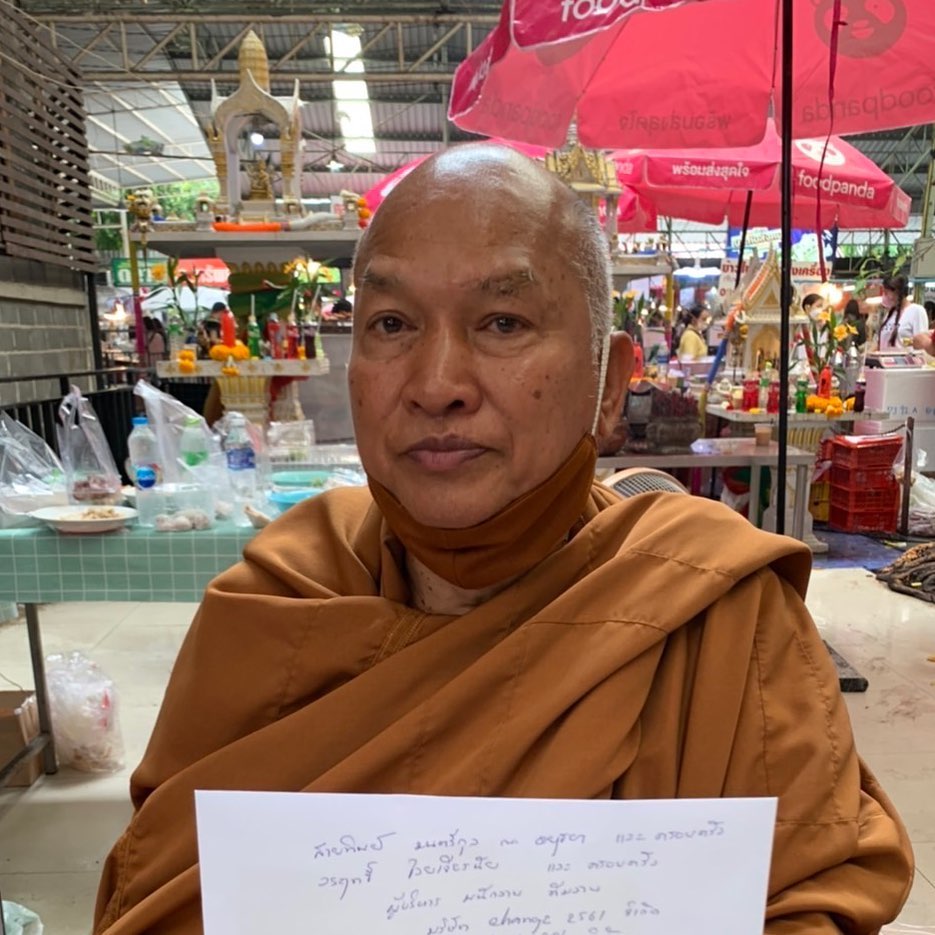 foodpanda
foodpanda
พร้อมส่งสุดใจ
พร้อมส่งสุดใจ
foodpanda
สายทิพย์ มนตรีกุล ณ อยุธยา และ ครอบครัว
วรฤทธิ์ ไวยเจียรนัย และ ครอบครัว
ผู้บริหาร พนักงาน ทีมงาน
บริษัท change 2561 จำกัด